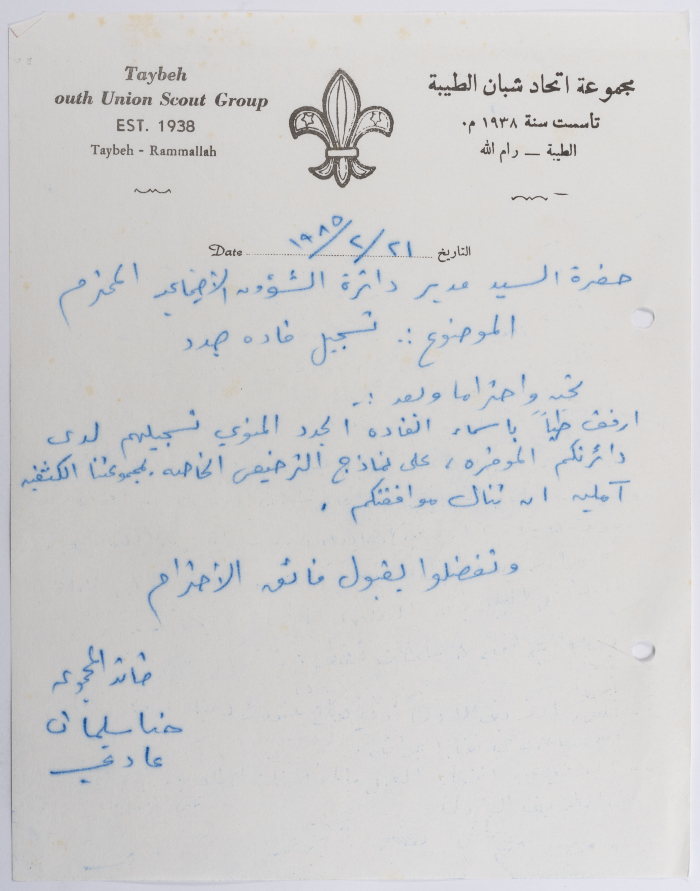 Taybeh
outh Union Scout Group
EST. 1938
Taybeh - Rammallah
مجموعة اتحاد شبان الطيبة
تأسست سنة ١٩٣٨ م.
الطيبة — رام الله
Date ٢١/٢/١٩٨٥ التاريخ
حضرة السيد مدير دائرة الشؤون الاجتماعيه المحترم
الموضوع :. تسجيل قاده جدد
تحيه واحتراما وبعد :.
ارفق طياً باسماء القاده الجدد المنوي تسجيلهم لدى
دائرتكم الموقره، على نماذج الترخيص الخاصه بمجموعتنا الكشفيه
آملين ان تنال موافقتكم .
وتفضلوا بقبول فائق الاحترام
قائد المجموعه
حنا سليمان